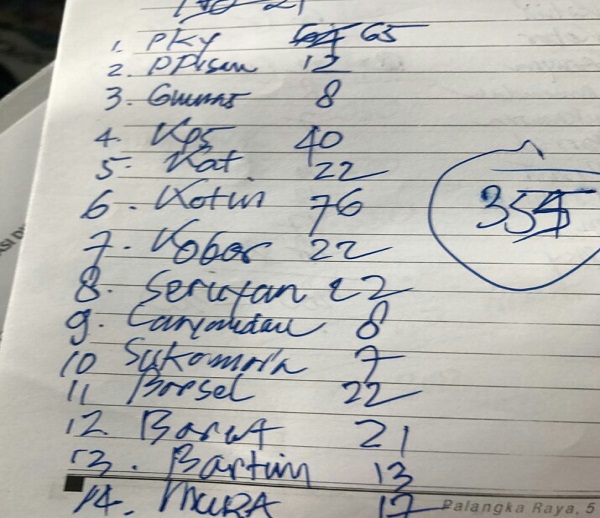 1. PKY 65
2. PPisau 12
3. Gumas 8
4. Kps 40
5. Kat 22
6. Kotim 76
7. Kobar 22
8. Seruyan 22
9. Lamandau 8
10 Sukamara 7
11 Barsel 22
12. Barut 21
13. Bartim 13
14. MURA 17
355
Palangka Raya, 5